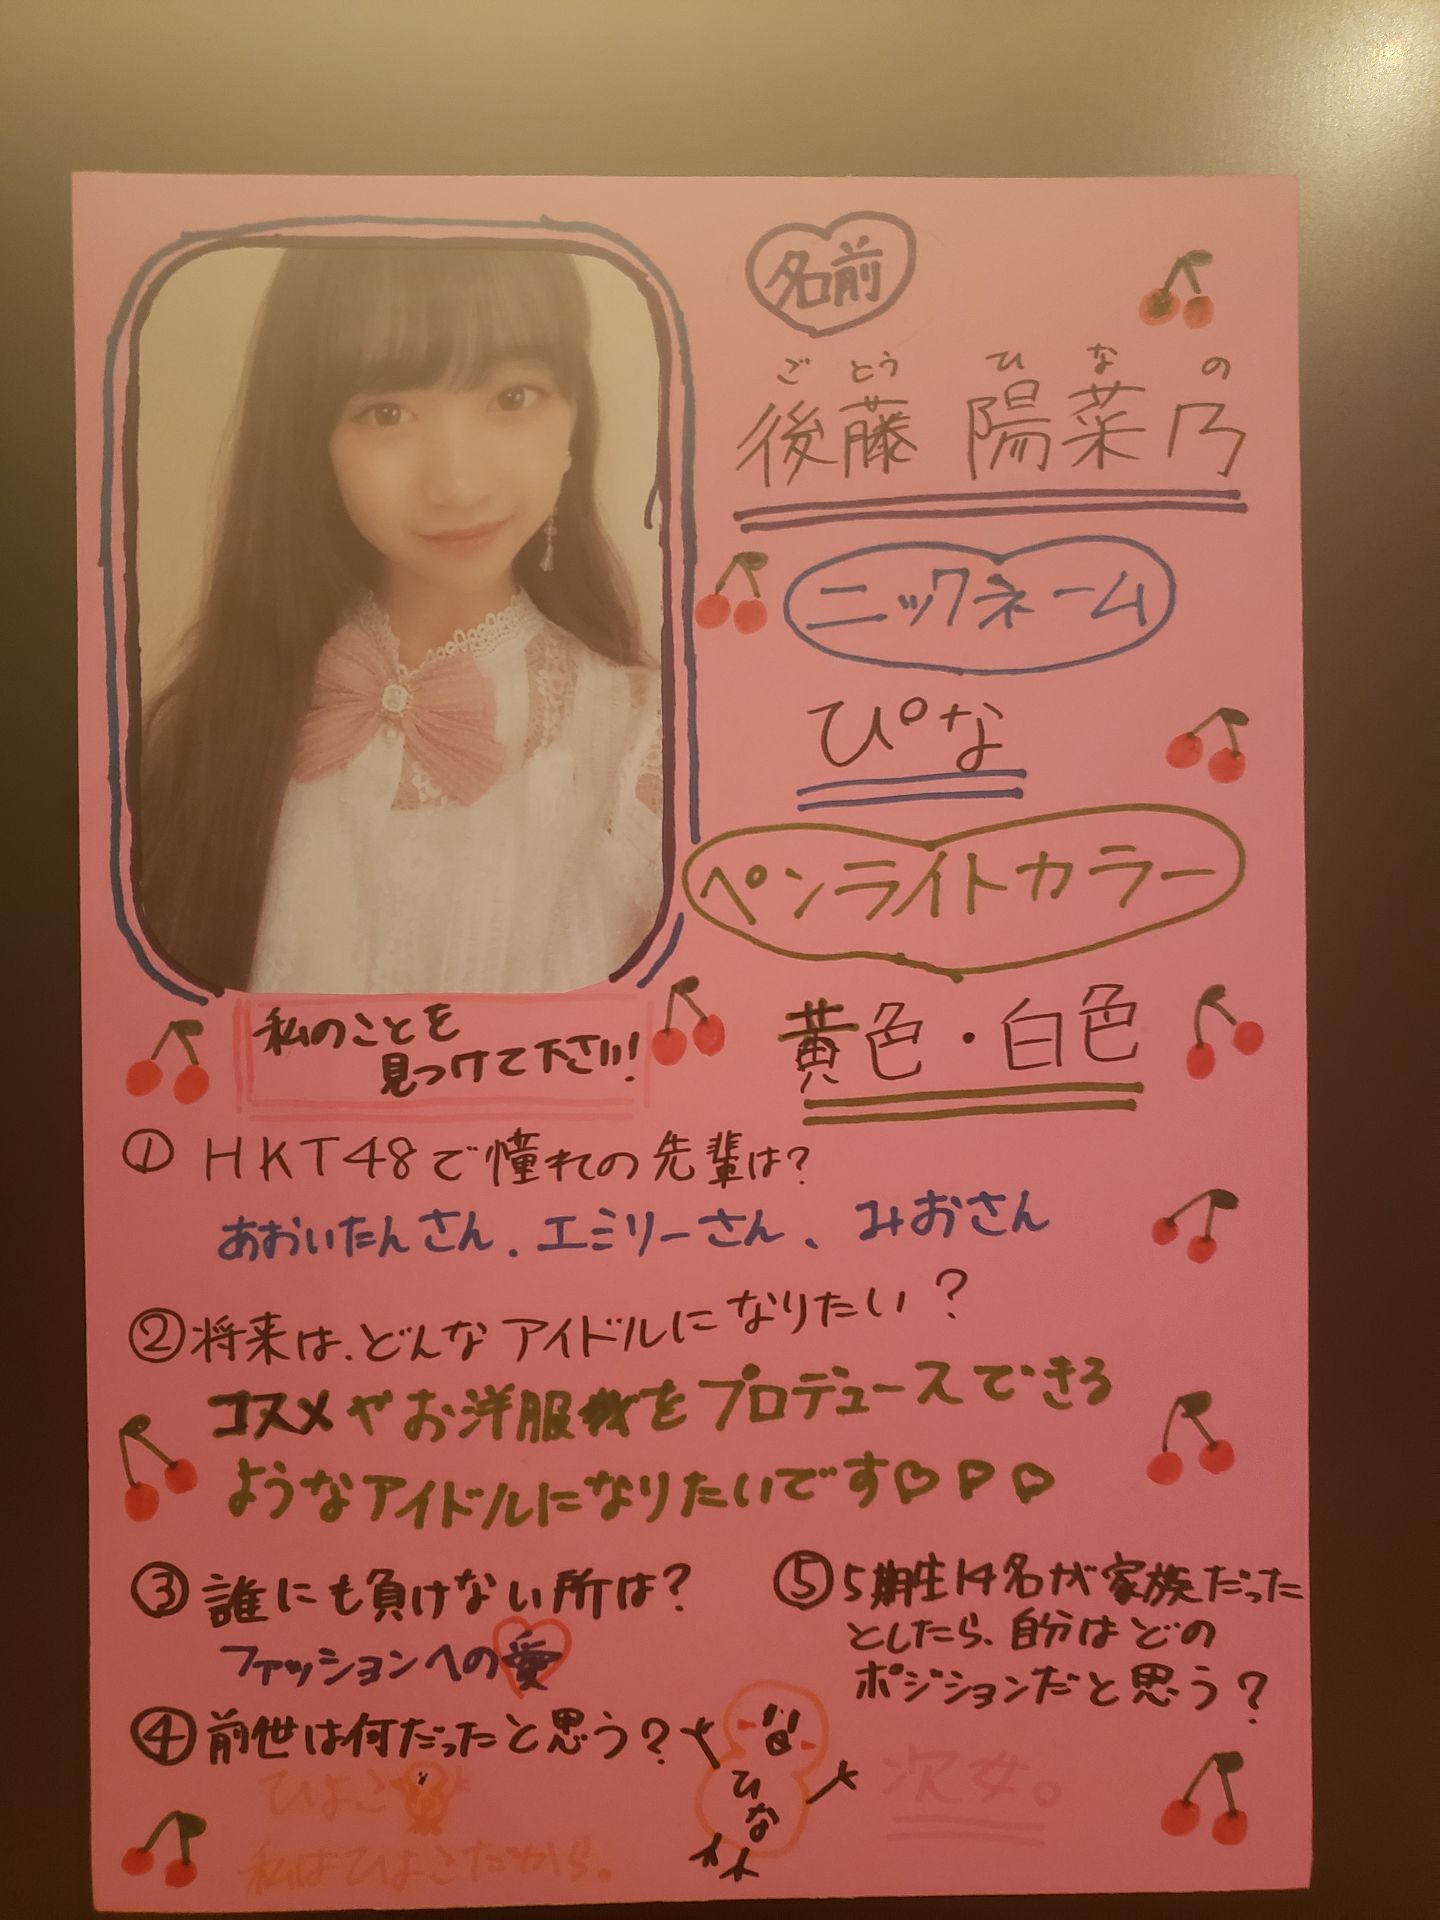 名前
ごとう ひなの
後藤 陽菜乃
ニックネーム
ぴな
ペンライトカラー
黄色・白色
私のことを
見つけて下さい!
① HKT48で憧れの先輩は?
あおいたんさん、エミリーさん、みおさん
②将来は、どんなアイドルになりたい?
コスメやお洋服をプロデュースできる
ようなアイドルになりたいです♡♡♡
③誰にも負けない所は?
ファッションへの愛
④前世は何だったと思う?
ひよこ
私はひよこだから。
ひな
⑤5期生14名が家族だった
としたら、自分はどの
ポジションだと思う?
次女。